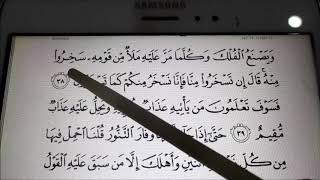 SAMSUNG
وَيَصْنَعُ الْفُلْكَ وَكُلَّمَا مَرَّ عَلَيْهِ مَلَأٌ مِّن قَوْمِهِۦ سَخِرُوا۟
مِنْهُ قَالَ إِن تَسْخَرُوا۟ مِنَّا فَإِنَّا نَسْخَرُ مِنكُمْ كَمَا ٣٨
فَسَوْفَ تَعْلَمُونَ مَن يَأْتِيهِ عَذَابٌ يُخْزِيهِ وَيَحِلُّ عَلَيْهِ عَذَابٌ
مُّقِيمٌ ٣٩ حَتَّىٰٓ إِذَا جَآءَ وَفَارَ التَّنُّورُ قُلْنَا احْمِلْ فِيهَا
مِن كُلٍّ اثْنَيْنِ وَأَهْلَكَ إِلَّا مَن سَبَقَ عَلَيْهِ الْقَوْلُ